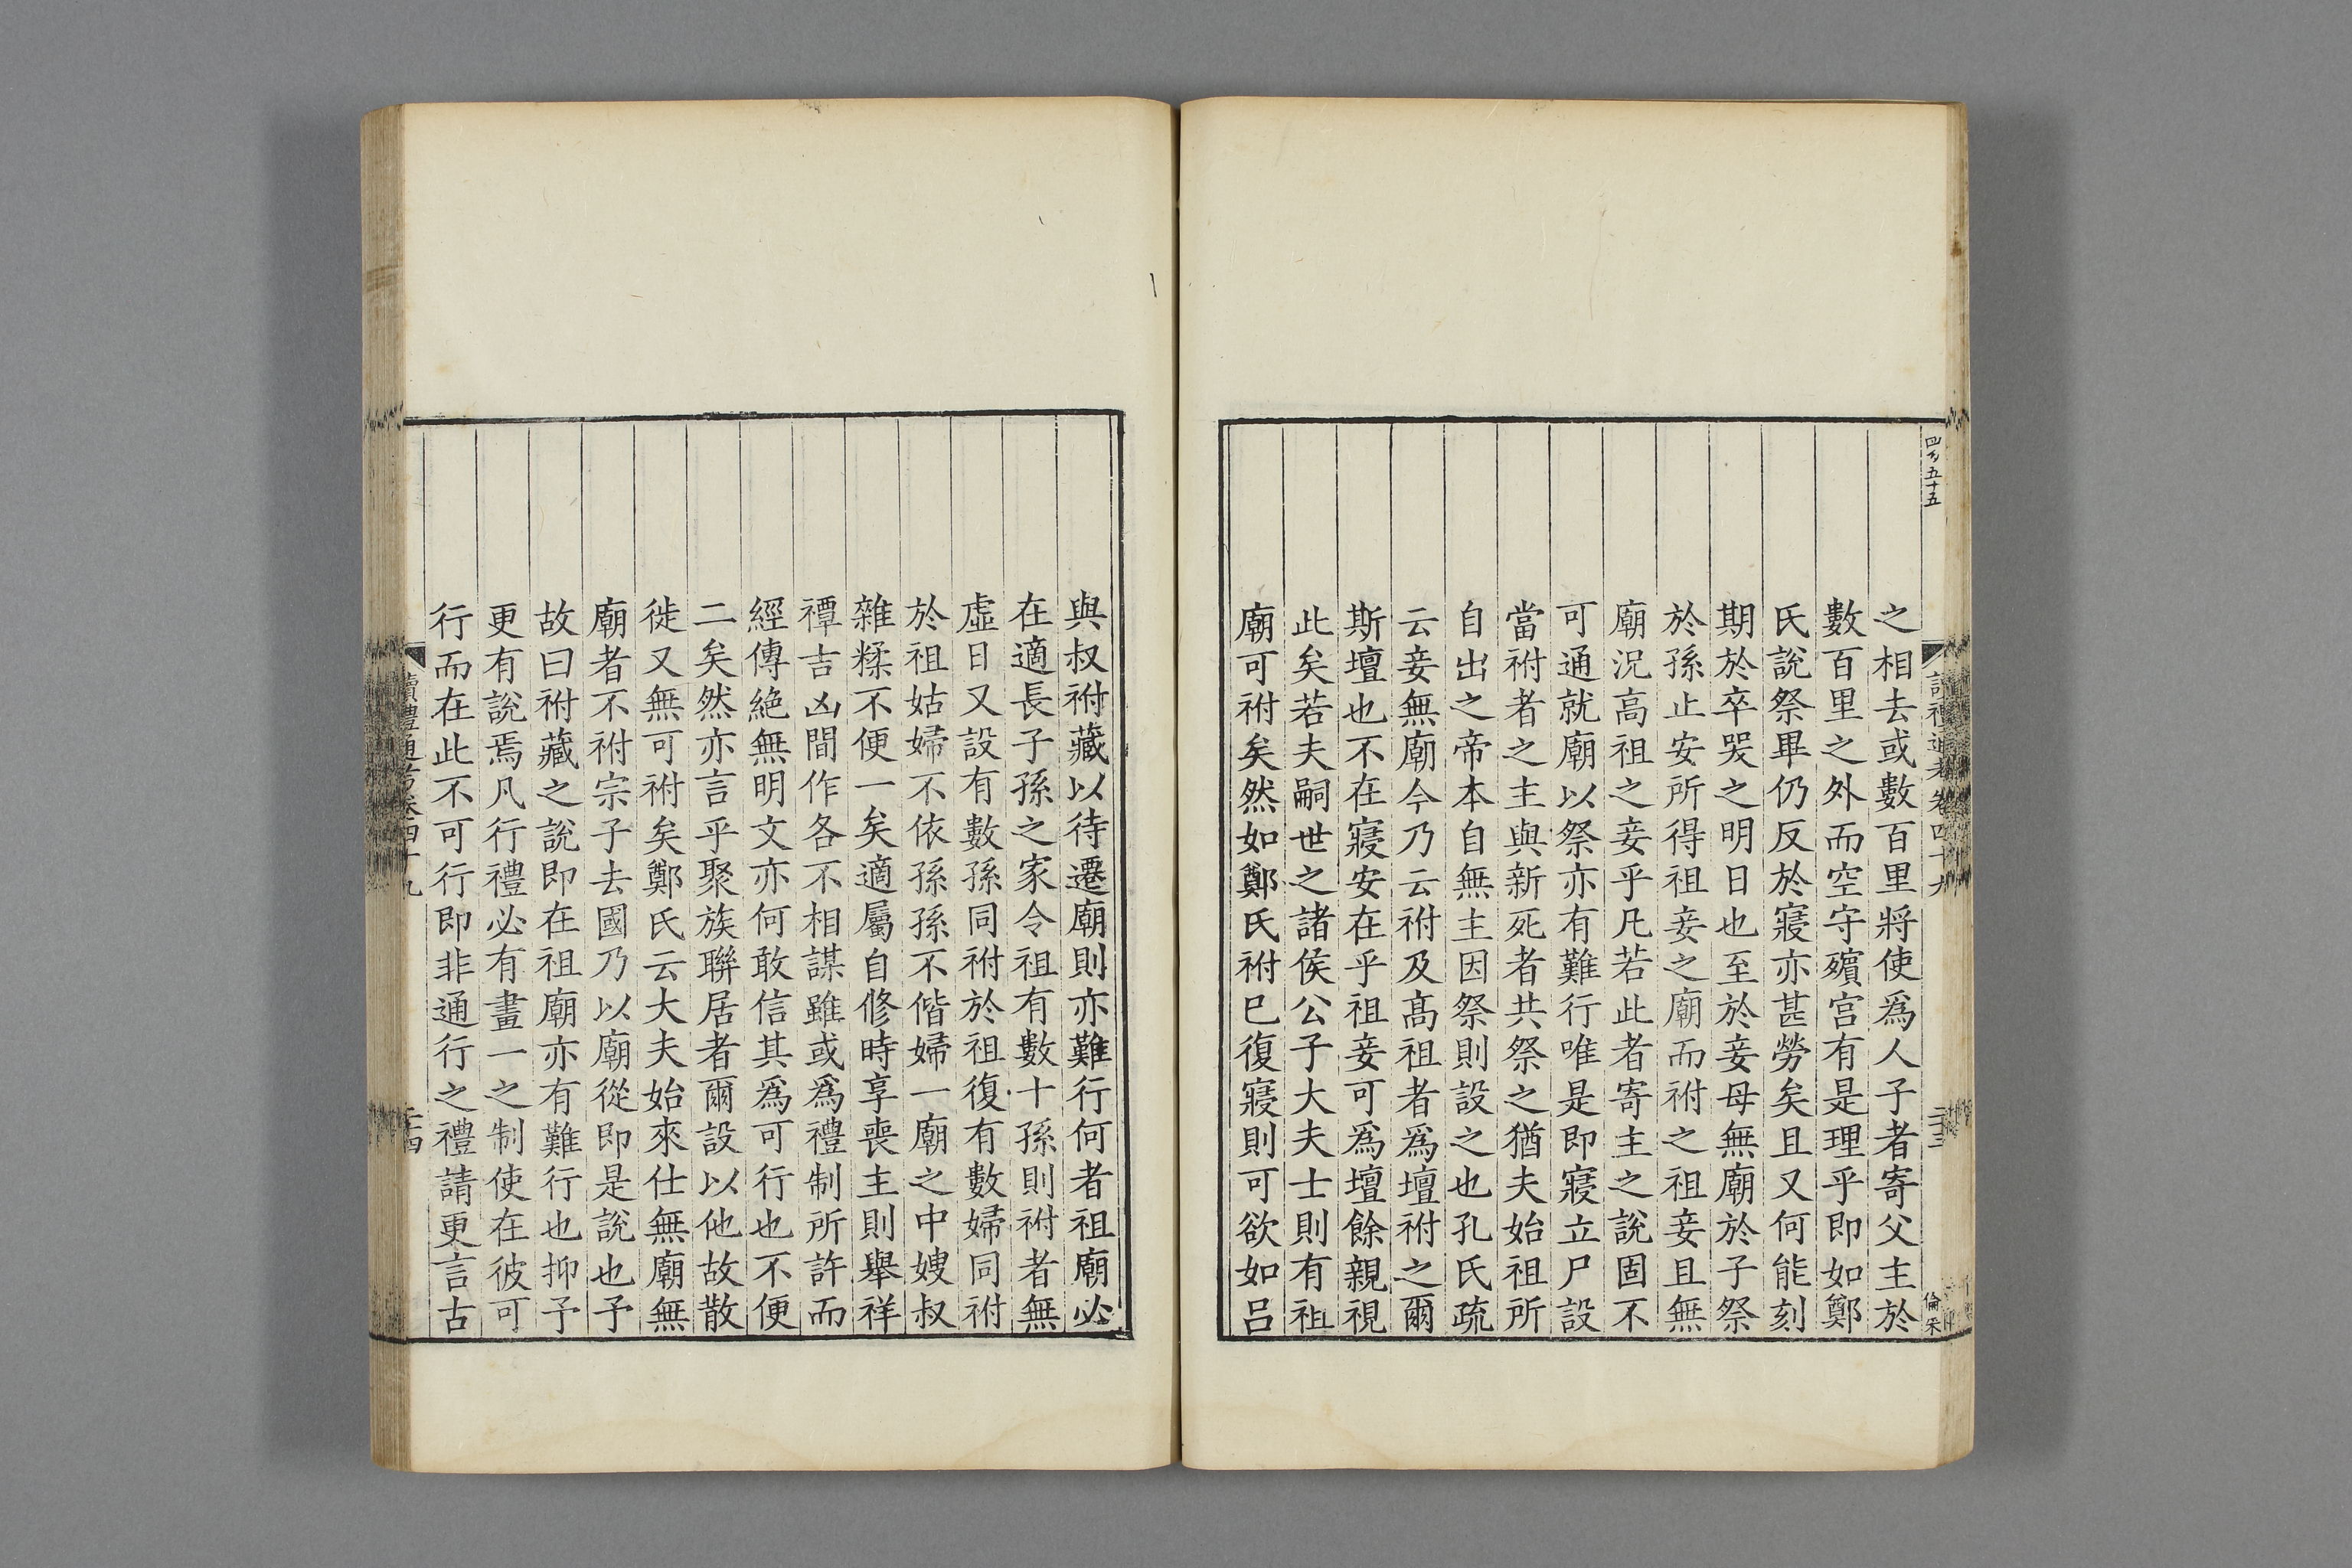 四百五十五
讀禮通考卷四十九
二十三
倫采
之相去或數百里將使爲人子者寄父主於
數百里之外而空守殯宫有是理乎即如鄭
氏說祭畢仍反於寢亦甚勞矣且又何能刻
期於卒哭之明日也至於妾母無廟於子祭
於孫止安所得祖妾之廟而祔之祖妾且無
廟況高祖之妾乎凡若此者寄主之說固不
可通就廟以祭亦有難行唯是即寢立尸設
當祔者之主與新死者共祭之猶夫始祖所
自出之帝本自無主因祭則設之也孔氏疏
云妾無廟今乃云祔及髙祖者爲壇祔之爾
斯壇也不在寢安在乎祖妾可爲壇餘親視
此矣若夫嗣世之諸侯公子大夫士則有祖
廟可祔矣然如鄭氏祔巳復寢則可欲如呂
與叔祔藏以待遷廟則亦難行何者祖廟必
在適長子孫之家令祖有數十孫則祔者無
虛日又設有數孫同祔於祖復有數婦同祔
於祖姑婦不依孫孫不偕婦一廟之中嫂叔
雜糅不便一矣適屬自修時享喪主則舉祥
禫吉凶間作各不相謀雖或爲禮制所許而
經傳絶無明文亦何敢信其爲可行也不便
二矣然亦言乎聚族聯居者爾設以他故散
徙又無可祔矣鄭氏云大夫始來仕無廟無
廟者不祔宗子去國乃以廟從即是說也予
故曰祔藏之說即在祖廟亦有難行也抑予
更有說焉凡行禮必有畫一之制使在彼可
行而在此不可行即非通行之禮請更言古
讀禮通考卷四十九
二十四